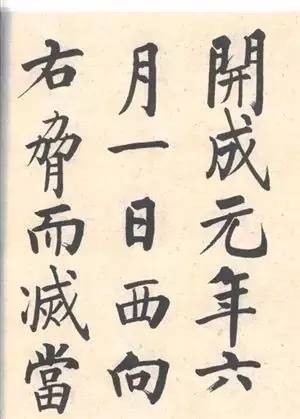 開成元年六
月一日西向
右脅而滅當